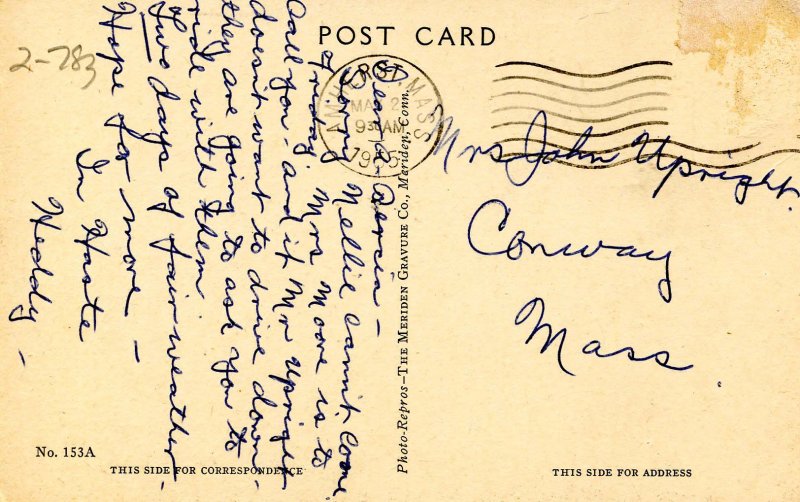 POST CARD
2-783
AMHERST, MASS
9 30 AM
Dear
Sorry Nellie cannot come
Friday. Mrs Moore is to
call you - and if Mr Upright
doesn't want to drive down -
they are going to ask you to
ride with them.
Two days of fair weather -
Hope for more -
In Haste
Heddy -
Mrs John Upright.
Conway
Mass.
Photo-Repros-THE MERIDEN GRAVURE CO., Meriden, Conn.
No. 153A
THIS SIDE FOR CORRESPONDENCE
THIS SIDE FOR ADDRESS